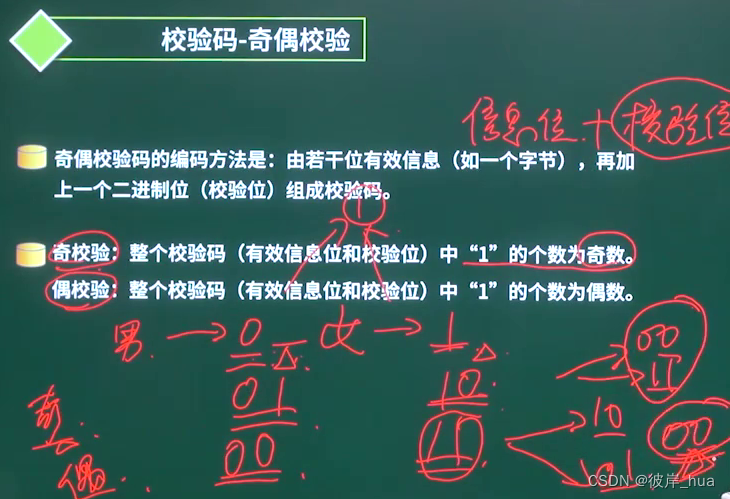 校验码-奇偶校验
信息位+校验位
奇偶校验码的编码方法是：由若干位有效信息（如一个字节），再加
上一个二进制位（校验位）组成校验码。
1
奇校验：整个校验码（有效信息位和校验位）中“1”的个数为奇数。
偶校验：整个校验码（有效信息位和校验位）中“1”的个数为偶数。
男 → 0 女 → 1 00
11
奇 01 10 10 00
偶 00 11 01
CSDN @彼岸_hua